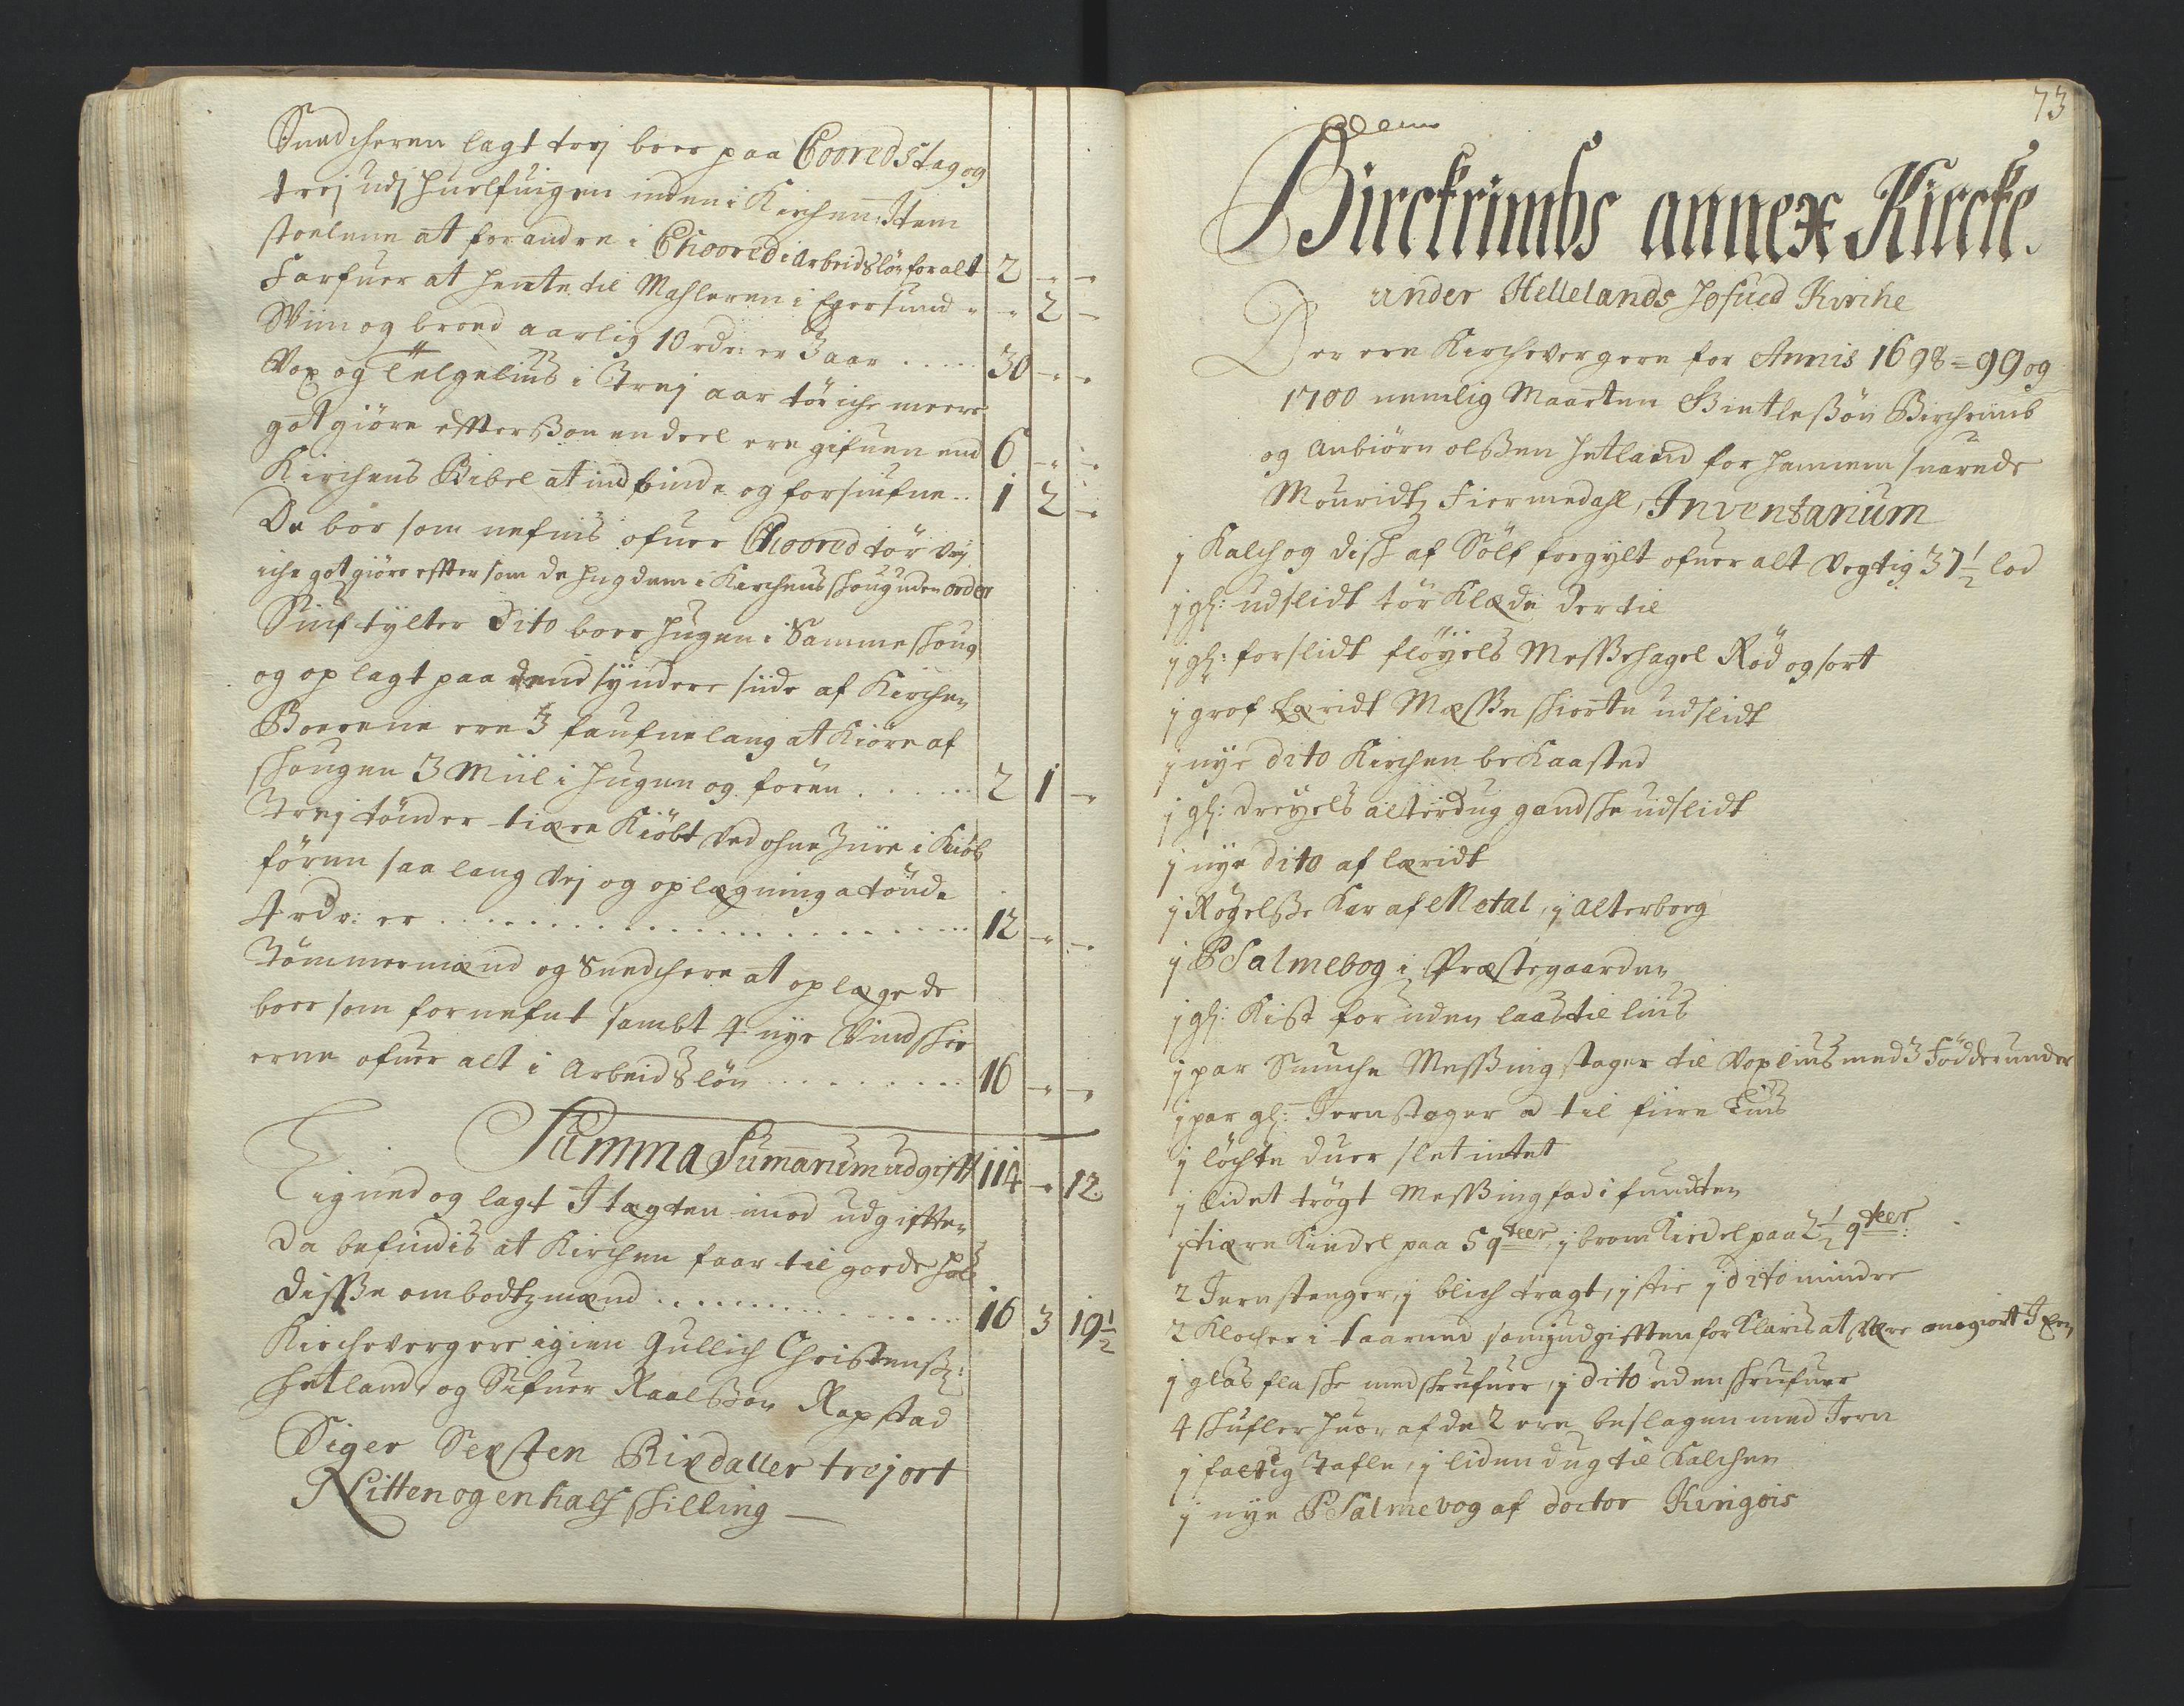 Snedcheren lagt trej boer paa Cooreds tag og
trej udj huelfuingen inden i Kirchen: Item
stoelene at forandre i Choored i arbeidslön for alt 2 - -
Farfuer at hente til Mahleren i Egersund - - 2 -
Wiin og bröd aarlig 10 rdr: er 3 aar ..... 30 - -
Vox og Telgelius i Trej aar tör iche meere
got giöre effterßom en deel ere gifuen end 6 - -
Kirchens Bibel at indbinde og forsiufne .. 1 2 -
De bör som nefnis ofuer Choored tör vej
iche got giöre effter som de hug dem i Kirchens skoug uden order
Siuf tylter Dito boer hugen i Samme skoug
og oplagt paa dend syndere siide af Kirchen
Boerene ere 3 faufne lang at Kiöre af
skougen 3 Miil i hugen og fören ...... 2 1 -
Trej tönder tiære Kiöbt ved ohne Ziire i Kiöb
fören saa lang vej og oplægning a tönde
4 rdr: er ........ 12 - -
Tömmermænd og Snedchere at oplægede
boer som fornefnt sambt 4 nye Vindskie
erne ofuer alt i Arbeidslön ......... 16 - -
Summa Sumarum udgifft 114 - 12
Ligned og lagt Itægten imod udgifften
da befindis at Kirchen faar til gode hos
disse ombodtzmænd ........ 16 3 19½
Kirchevergere igien Gullich Christenß:
Hetland, og Sifuer Raalßön Rapstad
Siger Sexsten Rixdaller trej ort
Nitten og en half skilling —
73
Birckrimbs annex Kircke.
under Hellelands Hofued Kirche
Der ere Kirchevergere for Annis 1698 = 99 og
1700 nemlig Maarten Bintleßön Birchrimb
og Anbiörn olßen Hetland for hannem suarede
Mouridtz Fiermedahl, Inventarium
j Kalch og disk af Sölf forgylt ofuer alt Vegtig 37½ lod
j gl: udslidt tör Klæde der til
j gl: forslidt flöyels Messehagel Röd og sort
j grof Læridt Mæsse skiorte udslidt
j nye dito Kirchen bekaasted
j gl: dreyels alterdug gandske udslidt
j nye dito af læridt
j Rögelsse Kar af Metal, j alterborg
j PSalmebog i Præstegaarden
j gl: Kist foruden laas til lius
j par Smuche Messing stager til Voxlius med 3 Födder under
j par gl: Jernstager a til fiire Lius
j löchte duer slet intet
j lidet trögt Messingfad i fundten
j tiære Kiedel paa 5 qteer, j brom Kiedel paa 2½ qteer:
2 Jernstenger, j blich tragt, j stie j dito mindre
2 Klocher i taarned som j udgifften for Klaris at være omgiort Igien
j glas flaske med skrufuer, j dito uden skrufuer
4 skufler huor af de 2 ere beslagen med Jern
j fattig Tafle, j liden dug til Kalchen
j nye PSalmebog af doctor Kingois